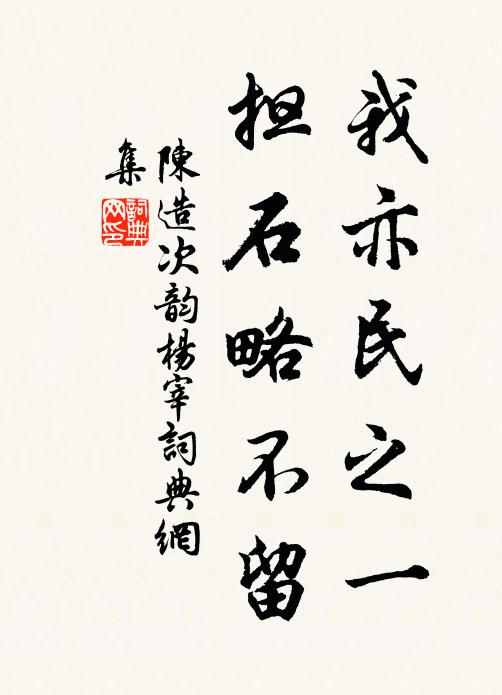 我亦民之一
担石略不留
陳造次韵楊宰詞典網
集
詞典
网印